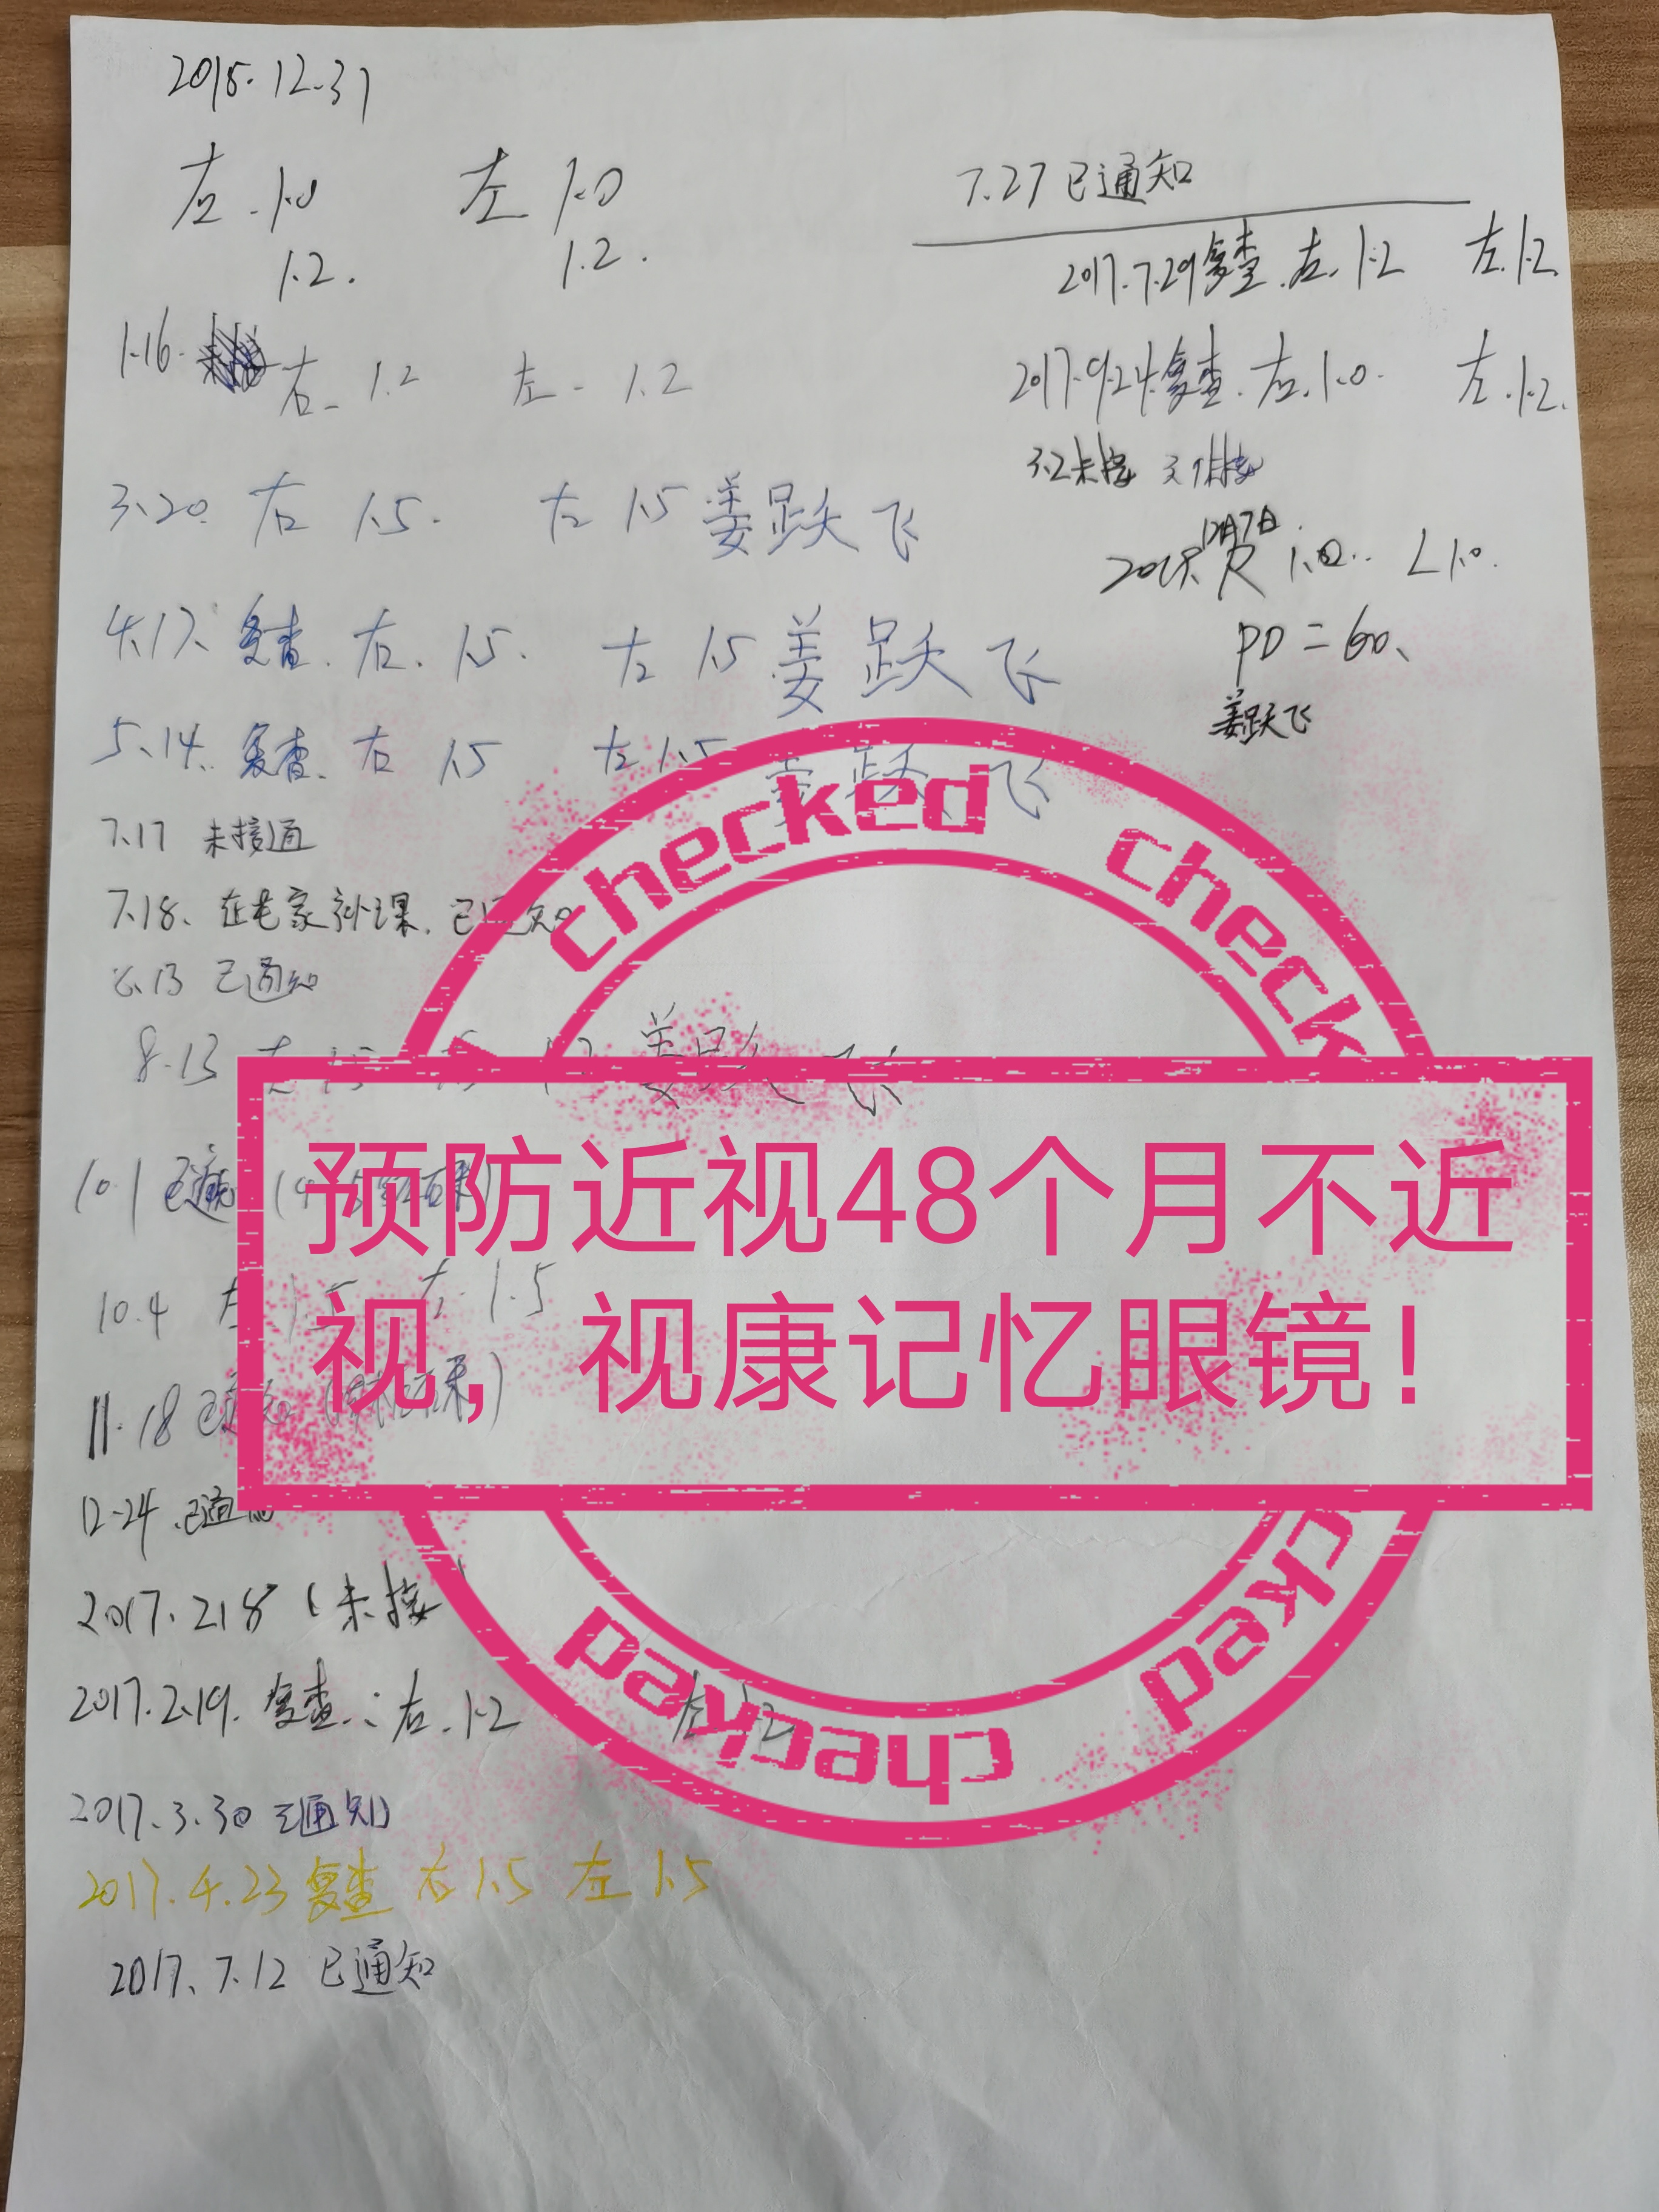 2015.12.31
右.1.0 左1.0
1.2. 1.2.
1.16. 右. 1.2 左. 1.2
3.20. 右 1.5. 左 1.5 姜跃飞
4.17. 复查. 右. 1.5. 左 1.5 姜跃飞
5.14. 复查. 右 1.5 左 1.5 姜跃飞
7.17 未接通
7.18. 在老家补课. 已通知
8.13 已通知
8.13 右 1.5 姜跃飞
10.1 已通知
10.4 右 1.5 左 1.5
11.18 已通知
12.24 .已通知
2017.2.18 (未接
2017.2.19. 复查.: 右.1.2 左 1.2
2017.3.30 已通知
2017.4.23 复查 右 1.5 左 1.5
2017.7.12 已通知
7.27 已通知
2017.7.29复查.右.1.2 左.1.2
2017.9.24.复查.右.1.0. 左.1.2.
3.2未接
12月7日
R 1.0.. L 1.0.
PD=60、
姜跃飞
checked checked
预防近视48个月不近
视，视康记忆眼镜！
checked checked